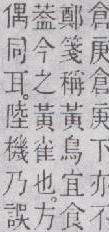 倉庚倉庚下亦不
鄭箋稱黃鳥宜食
葢今之黃雀也方
偶同耳陸機乃誤